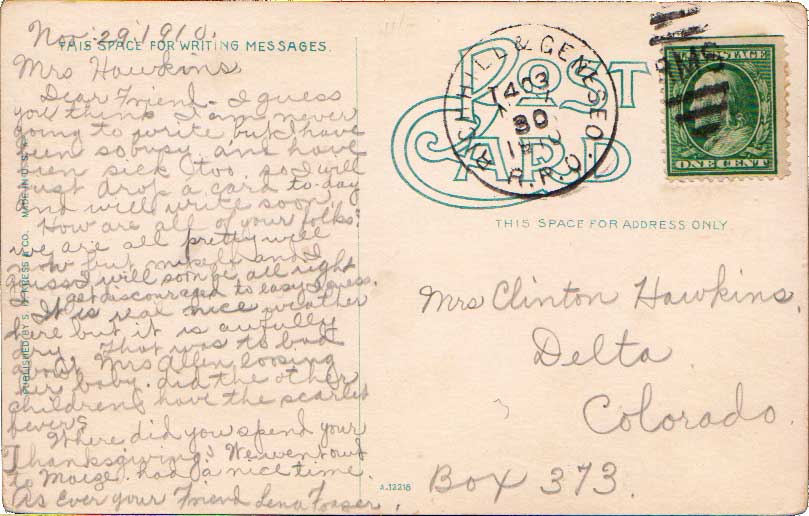 Nov. 29, 1910.
THIS SPACE FOR WRITING MESSAGES.
Mrs Hawkins
Dear Friend - I guess
you think I am never
going to write but I have
been so busy, and have
been sick, too, so I will
just drop a card to-day
and will write soon.
How are all of your folks?
we are all pretty well
now but myself and I
guess I will soon be all right
I get discouraged to easy I guess.
It is real nice weather
here but it is awfully
dry. That was to bad
about Mrs Allen loosing
her baby. did the other
children have the scarlet
fevers
Where did you spend your
Thanksgiving? We went out
to Maize. had a nice time.
As Ever your Friend Lena
PUBLISHED BY S. H. KRESS & CO. MADE IN U. S. A.
POST
CARD
RICH HILL & GENESEO.
T403
30
R.P.O.
RMS
POSTAGE
ONE CENT
THIS SPACE FOR ADDRESS ONLY
Mrs Clinton Hawkins.
Delta
Colorado.
Box 373.
A-12218